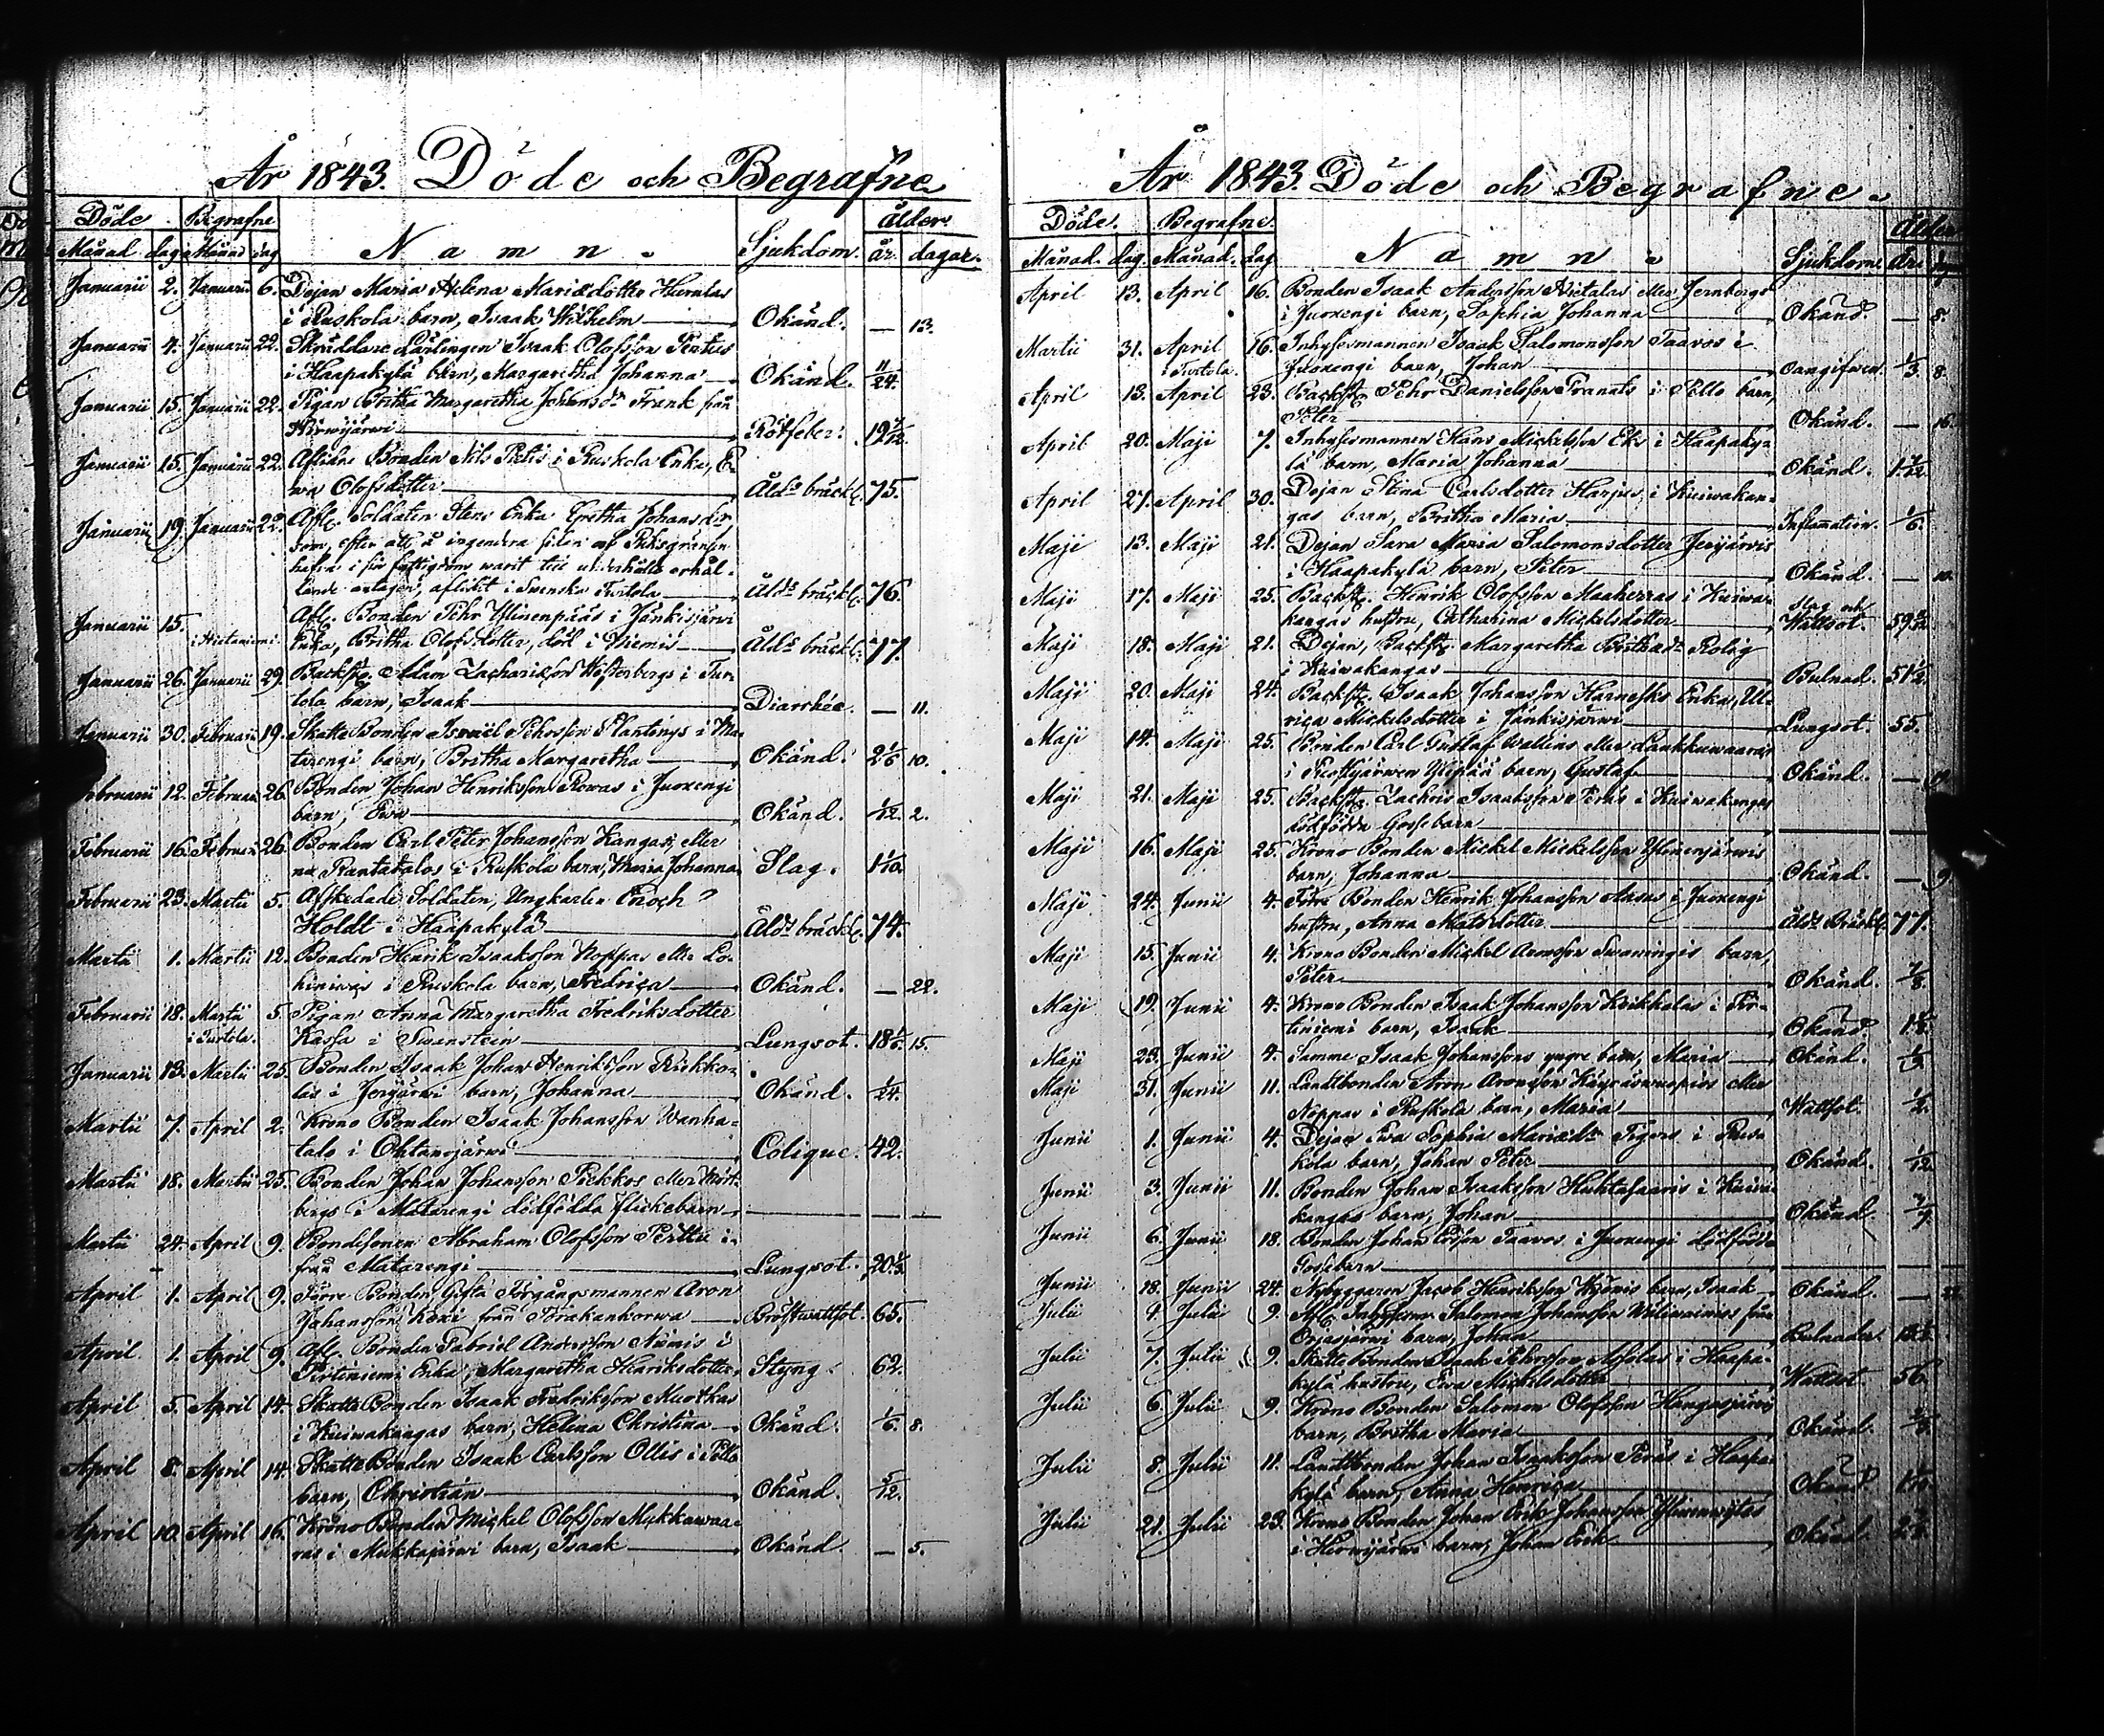 År 1843. Döde och Begrafne
Döde Begrafne Namn. Sjukdom. Ålder
Månad dag Månad dag år. dagar.
Januarii 2. Januarii 6. Dejan Maria Helena Mariædotter
i Ruskola barn, Isaak Wilhelm Okänd. — 13.
Januarii 4. Januarii 22. Skräddare Lärlingen Isaak Olofsson
i Haapakylä barn, Margaretha Johanna Okänd. 11/24.
Januarii 15. Januarii 22. Pigan Britha Margaretha Johansdr Frank från
Hirwijärwi Rötfeber. 19
Januarii 15. Januarii 22. Aflidne Bonden Nils i Ruskola Enka, E-
wa Olofsdotter Åldr bräckl. 75.
Januarii 19. Januarii 22. Afl. Soldaten Stens Enka Gretha Johansdr,
som, efter att å ingendera sidan af Riksgränsen
hafva i för fattigdom warit till underhålls erhål-
lande antagen, aflidit i Svenska Turtola Åldr bräckl. 76.
Januarii 15. Afl. Bonden Pehr Ylinenpääs i Jänkisjärwi
i Hietaniemi. Enka, Britha Olofsdotter, död i Niemis Åldr bräckl. 77.
Januarii 26. Januarii 29. Backst. Adam Zachariæson Westerbergs i Tur-
tola barn, Isaak Diarrhée. — 11.
Januarii 30. Februari 19. Skatte Bonden Israël Pehrsson Plantings i Ma-
tarengi barn, Britha Margaretha Okänd. 2 1/6 10.
Februarii 12. Februari 26. Bonden Johan Henriksson Rowas i Juoxengi
barn, Ewa Okänd. 1/12. 2.
Februarii 16. Februari 26. Bonden Carl Peter Johansson Kangas, eller
Rantatalos i Ruskola barn, Maria Johanna Slag. 1 1/10.
Februarii 23. Martii 5. Afskedade Soldaten, Ungkarlen Enoch
Holdt i Haapakylä Åldr bräckl. 74.
Martii 1. Martii 12. Bonden Henrik Isaaksson Noppas eller Lo-
hiniwas i Ruskola barn, Fredrica Okänd. — 22.
Februarii 18. Martii 5. Pigan Anna Margaretha Fredriksdotter
i Turtola. Kassa i Swanstein Lungsot. 18 1/6. 15.
Januarii 13. Martii 25. Bonden Isaak Johan Henriksson Kiekko-
las i Jerijärwi barn, Johanna Okänd. 1/24.
Martii 7. April 2. Krono Bonden Isaak Johansson Wanha-
talo i Ohtanajärwi Colique. 42.
Martii 18. Martii 25. Bonden Johan Johansson Piekkos eller
bergs i Matarengi dödfödda flickebarn — —
Martii 24. April 9. Bondesonen Abraham Olofsson Perttu
från Matarengi Lungsot.
April 1. April 9. Förre Bonden Gifta Förgångsmannen Aron
Johansson Koxi från Törakankorwa Bröstwattsot. 65.
April 1. April 9. Afl. Bonden Gabriel Andersson Niemis i
Pirtiniemi Enka, Margaretha Henriksdotter, Styng. 62.
April 5. April 14. Skatte Bonden Isaak Fredriksson Muotkas
i Kuiwakangas barn, Helena Christina Okänd. 1/6. 8.
April 8. April 14. Skatte Bonden Isaak Carlsson Ollis i Pello
barn, Christian Okänd. 5/12.
April 10. April 16. Krono Bonden Mickel Olofsson Mukkawaa-
ras i Mukkajärwi barn, Isaak Okänd. — 5.
År 1843. Döde och Begrafne.
Döde. Begrafne. Namn. Sjukdom. Ålder
Månad. dag. Månad. dag År.
April 13. April 16. Bonden Isaak Andersson Hietalas eller Jernbergs
i Juoxengi barn, Sophia Johanna Okänd. — 8.
Martii 31. April 16. Inhysesmannen Isaak Salomonsson Taavos i
i Turtola. Juoxengi barn, Johan oangifwen. 1/3. 8.
April 13. April 23. Backst. Pehr Danielsson Granats i Pello barn,
Peter Okänd. — 16.
April 20. Maji 7. Inhysesmannen Hans Mickelsson Eks i Haapaky-
lä barn, Maria Johanna Okänd.
April 27. April 30. Dejan Stina Carlsdotter Harjus i Kuiwakan-
gas barn, Britha Maria Inflamation. 1/6.
Maji 13. Maji 21. Dejan Sara Maria Salomonsdotter Jerijärwis
i Haapakylä barn, Peter Okänd. — 10.
Maji 17. Maji 25. Backst. Henrik Olofsson Maaherras i Kuiwa- Slag och
kangas hustru, Catharina Mickelsdotter Wattsot. 59
Maji 18. Maji 21. Dejan, Backst. Margaretha Brithasdr Rolig
i Kuiwakangas Bulnad. 51 1/2.
Maji 20. Maji 24. Backst. Isaak Johansson Harnesks Enka, Ul-
rica Mickelsdotter i Jänkisjärwi Lungsot. 55.
Maji 14. Maji 25. Bonden Carl Gustaf Wallins eller Laukkuwaaras
i barn, Gustaf Okänd. —
Maji 21. Maji 25. Backst. Zachris Isaaksson Peräs i Kuiwakangas
dödfödda Gossebarn
Maji 16. Maji 25. Krono Bonden Mickel Mickelsson Ylinenjärwis
barn, Johanna Okänd. — 9.
Maji 24. Junii 4. Förre Bonden Henrik Johansson i Juoxengi
hustru, Anna Matsdotter Åldr Bräckl. 77.
Maji 15. Junii 4. Krono Bonden Mickel Aronsson Swaningis barn,
Peter Okänd.
Maji 19. Junii 4. Krono Bonden Isaak Johansson Kriikkulas i Pir-
tiniemi barn, Isaak Okänd.
Maji 23. Junii 4. Samme Isaak Johanssons yngre barn, Maria Okänd.
Maji 31. Junii 11. Landtbonden Aron Aronsson eller
Noppas i Ruskola barn, Maria Wattsot. 1/2.
Junii 1. Junii 4. Dejan Ewa Sophia Mariædr Tigers i Rus-
kola barn, Johan Peter Okänd. 1/12.
Junii 3. Junii 11. Bonden Johan Isaaksson Huhtasaaris i Kuiwa-
kangas barn, Johan Okänd.
Junii 6. Junii 18. Bonden Johan Ersson Taavos i Juoxengi dödfödda
Gossebarn
Junii 18. Junii 24. Nybyggaren Jacob Henriksson barn, Isaak Okänd. —
Julii 4. Julii 9. Afl. Salomon Johansson från
Orjasjärwi barn, Johan Bulnader.
Julii 7. Julii 9. Skatte Bonden Isaak Pehrsson i Haapa-
kylä hustru, Ewa Mickelsdotter Wattsot 56.
Julii 6. Julii 9. Krono Bonden Salomon Olofsson Kangasjärwis
barn, Britha Maria Okänd.
Julii 8. Julii 11. Landtbonden Johan Isaaksson Peräs i Haapa-
kylä barn, Anna Henrica Okänd
Julii 21. Julii 23. Krono Bonden Johan Erik Johansson
i Hirwijärwi barn, Johan Erik Okänd.